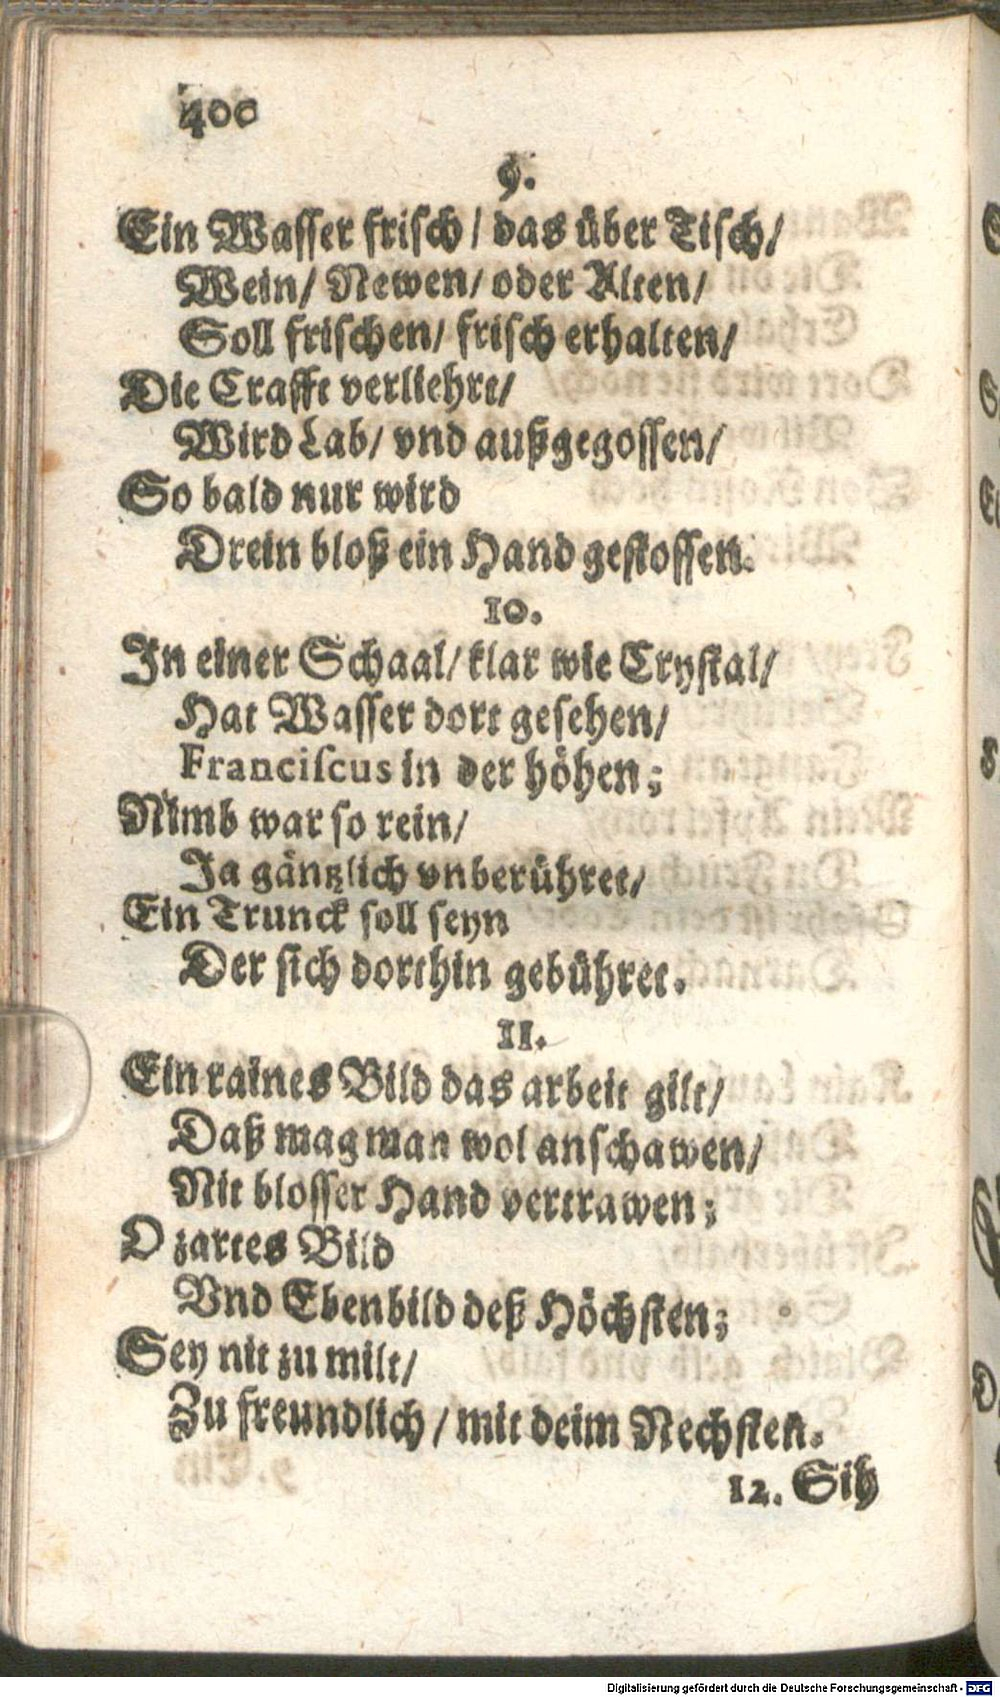 400
9.
Ein Wasser frisch / das über Tisch /
Wein / Newen / oder Alten /
Soll frischen / frisch erhalten /
Die Crafft verliehrt /
Wird Lab / vnd außgegossen /
So bald nur wird
Drein bloß ein Hand gestossen.
10.
In einer Schaal / klar wie Crystal /
Hat Wasser dort gesehen /
Franciscus in der höhen ;
Nimb war so rein /
Ja gäntzlich vnberühret /
Ein Trunck soll seyn
Der sich dorthin gebühret.
11.
Ein raines Bild das arbeit gilt /
Daß mag man wol anschawen /
Nit blosser Hand vertrawen ;
O zartes Bild
Vnd Ebenbild deß Höchsten ;
Sey nit zu milt /
Zu freundlich / mit deim Nechsten.
12. Sih
Digitalisierung gefördert durch die Deutsche Forschungsgemeinschaft - DFG